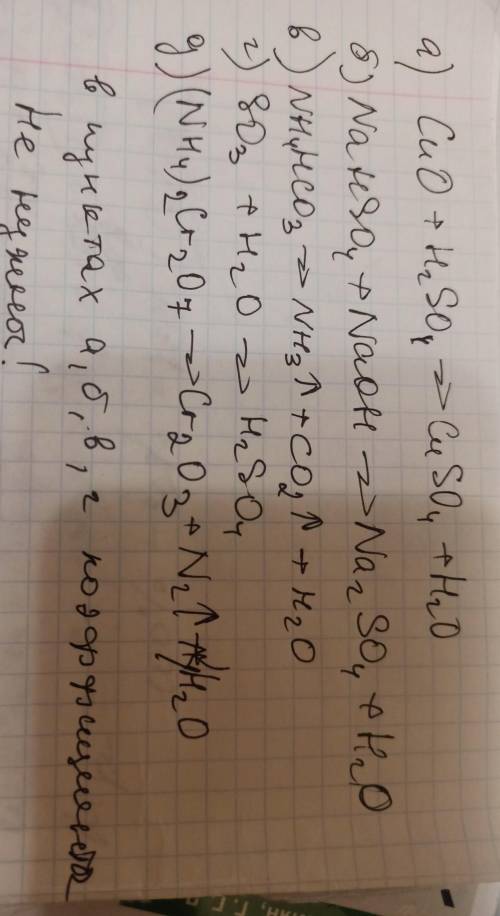 а) CuO + H₂SO₄ → CuSO₄ + H₂O
б) NaHSO₄ + NaOH → Na₂SO₄ + H₂O
в) NH₄HCO₃ → NH₃↑ + CO₂↑ + H₂O
г) SO₃ + H₂O → H₂SO₄
д) (NH₄)₂Cr₂O₇ → Cr₂O₃ + N₂↑ + 4H₂O
в пунктах а, б, в, г коэффициенты
Не нужны!